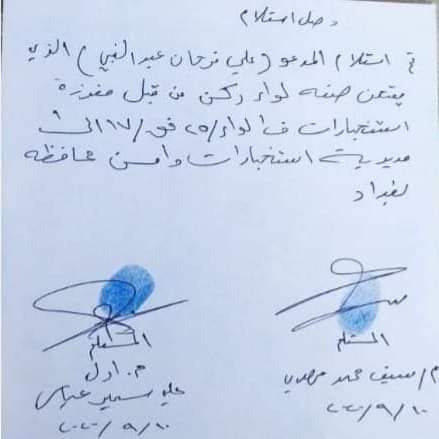 وصل استلام
تم استلام المدعو (علي فرحان عبد النبي) الذي
يمتهن صفه لواء ركن من قبل مفرزة
استخبارات ف الواء/٢٥ فق/١٧ الى
مديرية استخبارات وامن محافظه
بغداد
المستلم
م/سيف محمد مهدي
٢٠٢٠/٩/١٠
المسلم
م. اول
علي سمير عباس
٢٠٢٠/٩/١٠